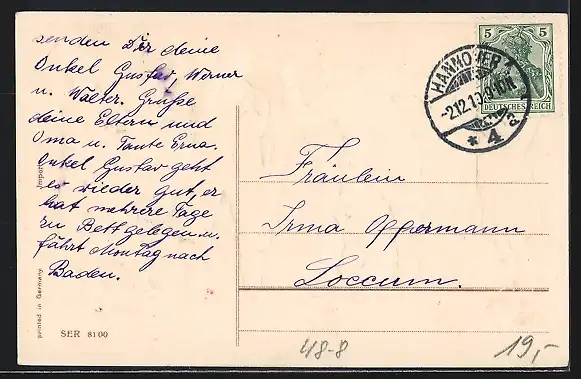 senden Dir deine
Onkel Gustav, Werner
u. Walter. Grüße
deine Eltern und
Oma u. Tante Erna.
Onkel Gustav geht
es wieder gut, er
hat mehrere Tage
zu Bett gelegen u.
fährt Montag nach
Baden.
printed in Germany.
Import
SER 8100
5 5
DEUTSCHES REICH
HANNOVER
-2.12.10.9-10N.
* 4
Fräulein
Irma Oppermann
Loccum.
48-8
19,-